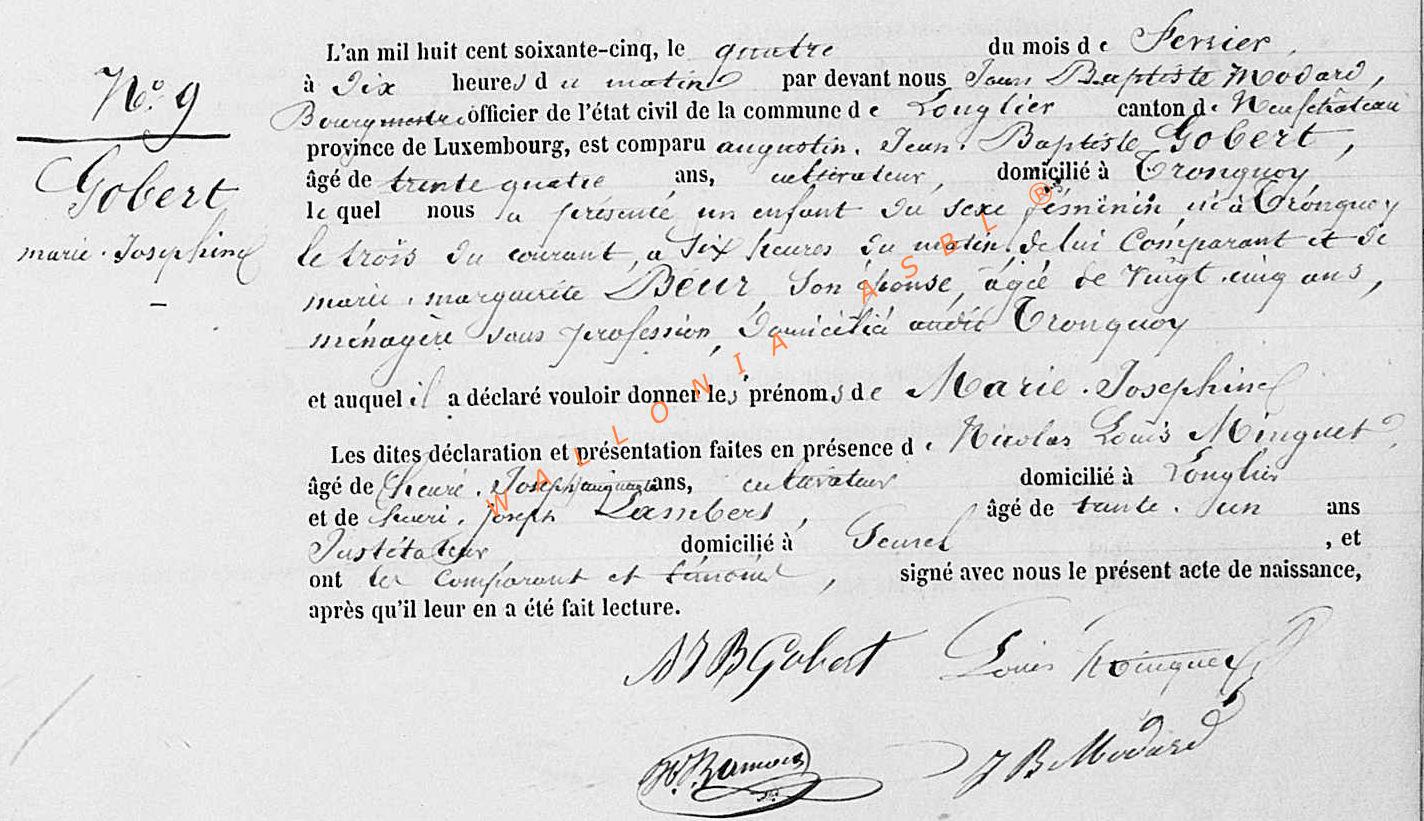 N.º 9
Gobert
marie. Josephine
L'an mil huit cent soixante-cinq, le quatre du mois de Fevrier,
à Dix heures du matin par devant nous Jean Baptiste Modard,
Bourgmestre officier de l'état civil de la commune de Longlier canton de Neufchateau
province de Luxembourg, est comparu augustin. Jean. Baptiste Gobert,
âgé de trente quatre ans, cultivateur, domicilié à Tronquoy
lequel nous a présenté un enfant du sexe féminin, né à Tronquoy
le trois du courant, a Six heures du matin, de lui Comparant et de
marie. marguerite Béur, Son épouse, âgée de vingt cinq ans,
ménagère sans profession, Domicilié audit Tronquoy
et auquel il a déclaré vouloir donner les prénoms de Marie. Josephine
Les dites déclaration et présentation faites en présence de Nicolas Louis Minguet,
âgé de ans, cultivateur domicilié à Longlier
et de henri. joseph Lambert, âgé de trente. un ans
domicilié à , et
ont les comparant et témoins, signé avec nous le présent acte de naissance,
après qu'il leur en a été fait lecture.
AJB Gobert Louis Minguet
JB Modard
WALLONIA ASBL ®